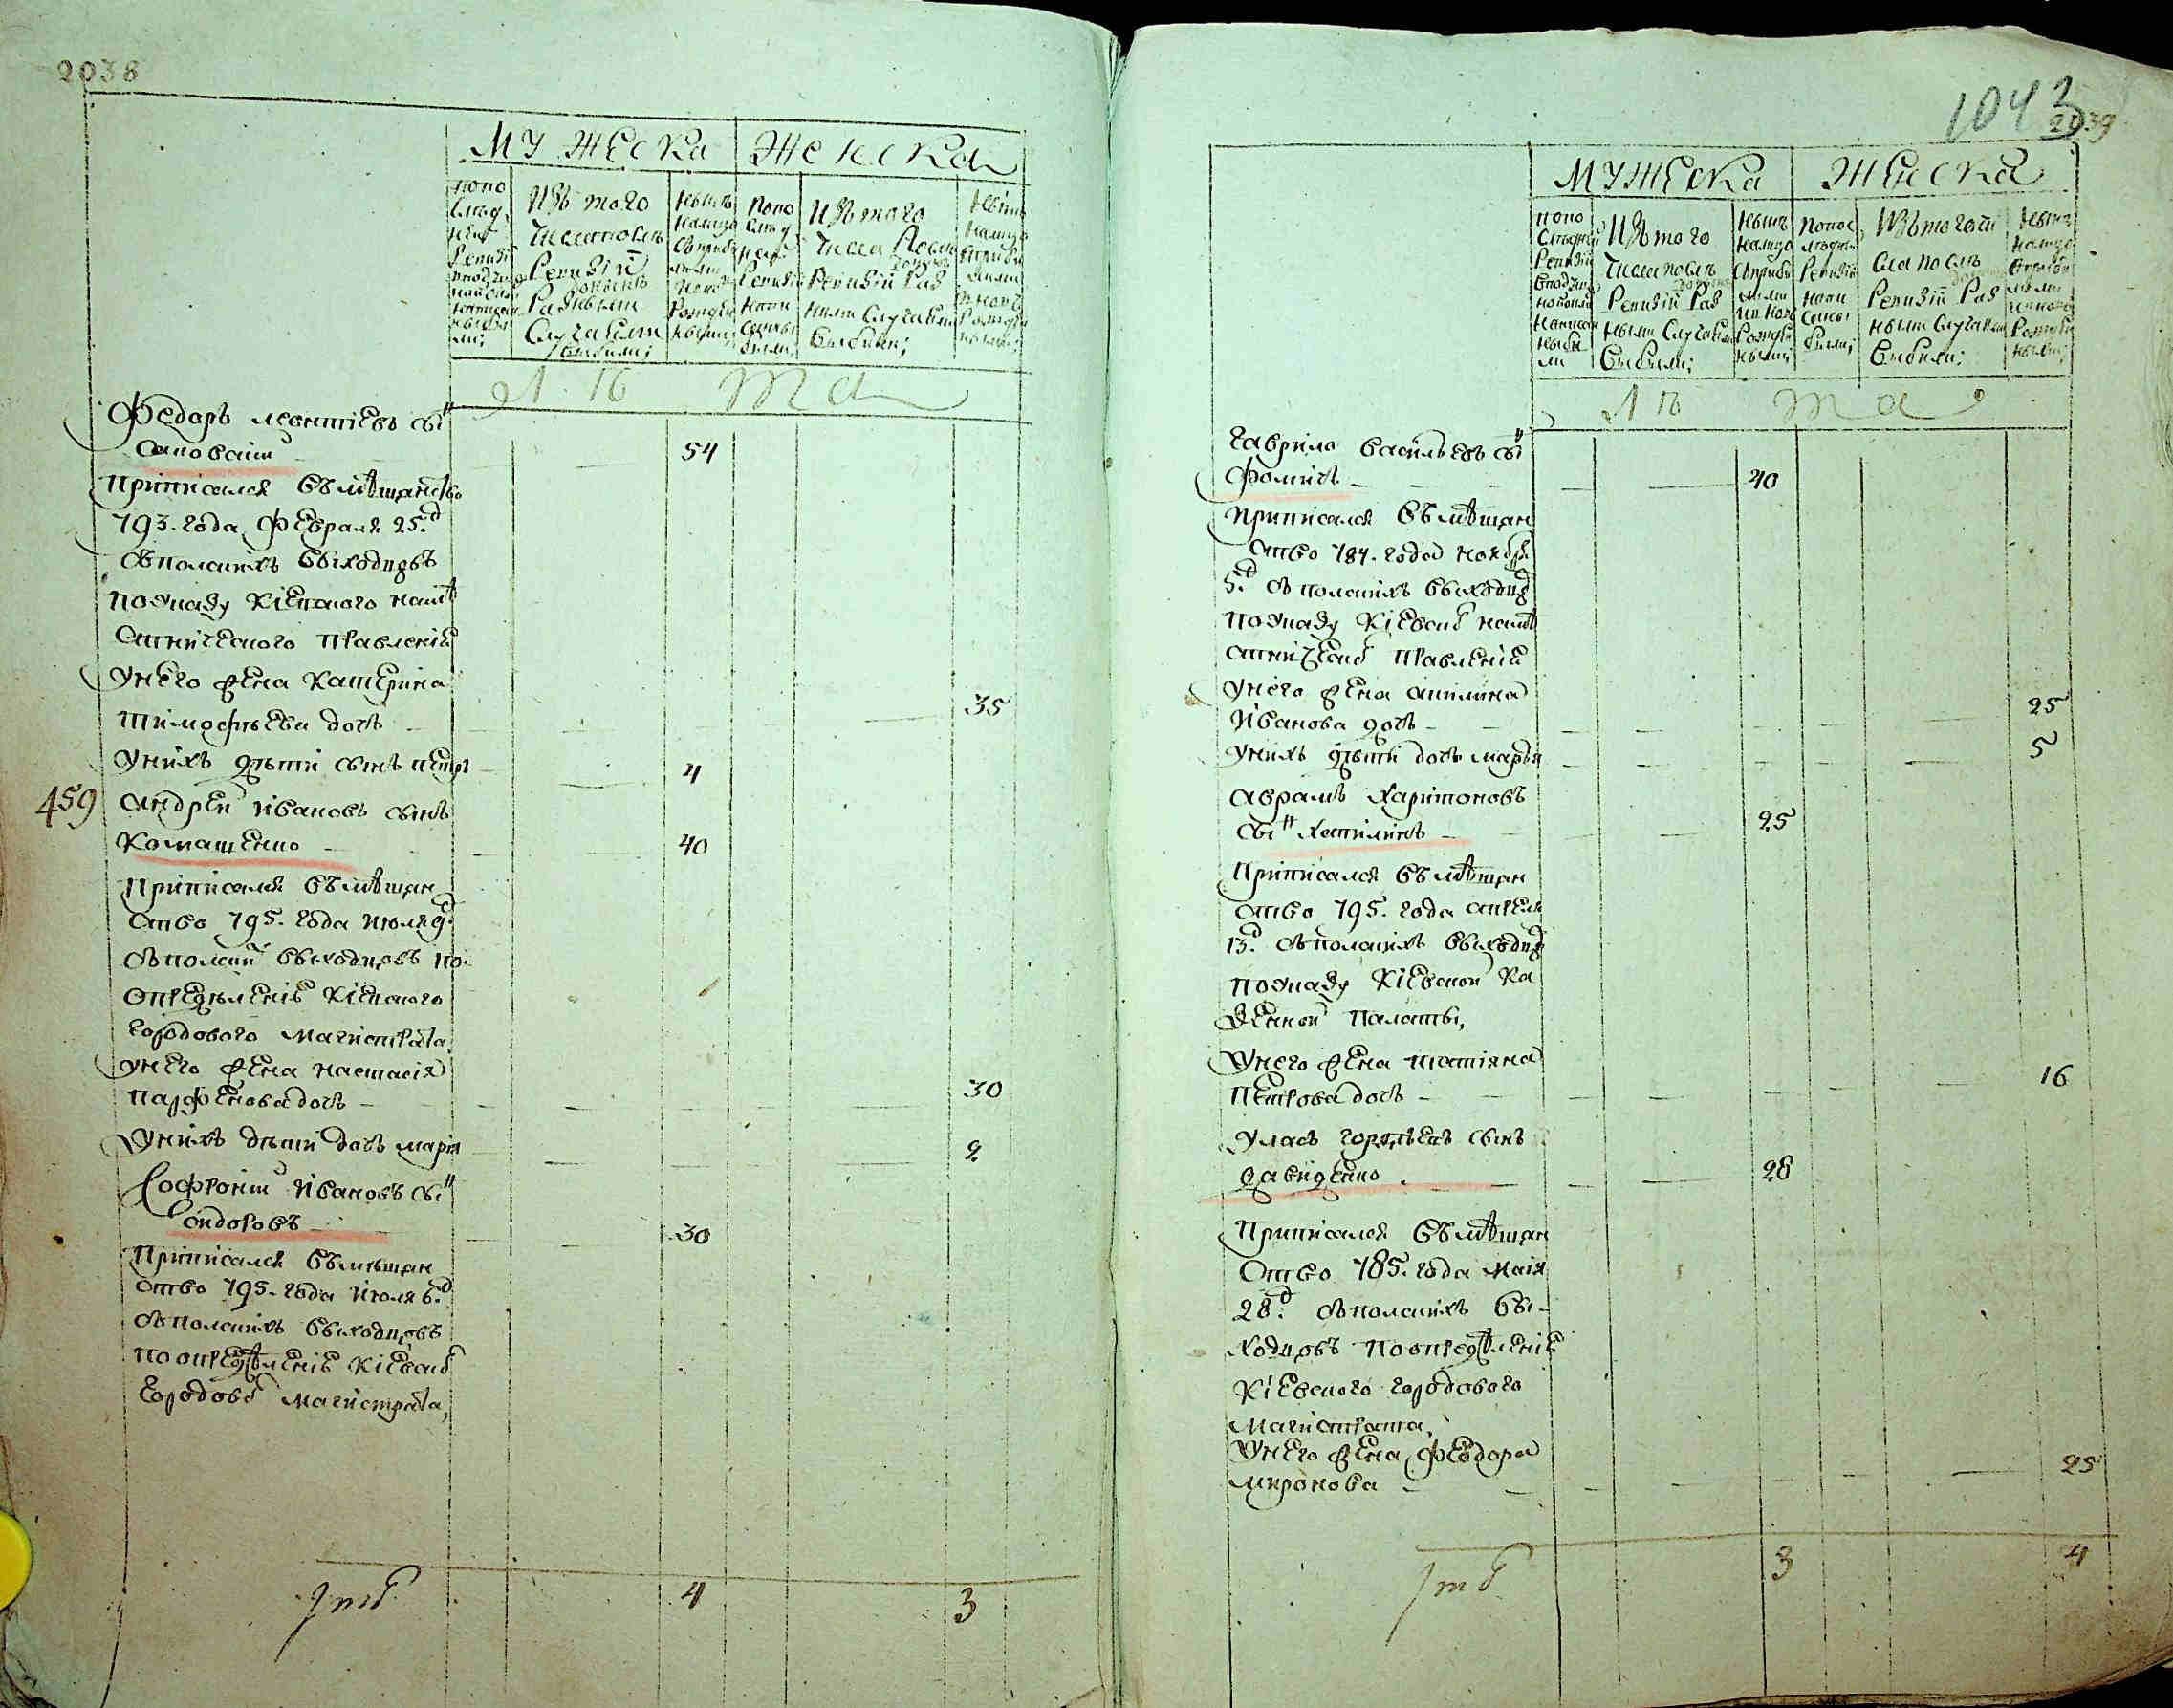 2038
Мужеска Женска
попо
слѣд
ней
Ревизіи
Изъ того
числа послѣ
Ревизіи
разными
случаями
выбыли;
нынѣ
налицо
съ прибы
лыми
рожден
ными;
попо
слѣд
ней
Ревизіи
состо
яли
Изъ того
числа послѣ
Ревизіи раз
ными случаями
выбыли;
нынѣ
налицо
съ прибы
лыми
Лѣта
Федоръ Леонтіевъ сы н
54
Приписался въ мѣщанство
793. года февраля 25. д
съ полскихъ выходцовъ
по указу Кіевского намѣ
стническаго правленія
у него жена Катерина
Тимофѣева дочь 35
у нихъ дѣти сынъ Петръ 4
459 Андрей Ивановъ сынъ
Комашенко 40
Приписался въ мѣщан
ство 795. года июля 9. д
съ полски х выходцовъ по
определенію Кіевского
городового магистрата,
у него жена Настасія
Парфенова дочь 30
у нихъ дѣти дочь Марія 2
Софроній Ивановъ сы н
Сидоровъ 30
Приписался въ мѣщан
ство 795. года июля 6. д
съ полскихъ выходцовъ
по определенію Кіевско г
городово г магистрата,
Ито г 4 3
1043
2039
Мужеска Женска
попо
слѣдней
Ревизіи
Изъ того
числа послѣ
Ревизіи раз
ными случаями
выбыли;
нынѣ
налицо
съ прибы
лыми
рожден
ными;
попос
лѣдней
Ревизіи
Изъ того чи
сла послѣ
Ревизіи раз
ными случаями
выбыли;
нынѣ
налицо
Лѣта
Гаврило Васильевъ сы н
Фомичъ 40
Приписался въ мѣщан
ство 784. года ноября
5. д съ полскихъ выходцо в
по указу Кіевско г намѣ
стническо г правленія
у него жена Акилина
Иванова дочь 25
у нихъ дѣти дочь Марья 5
Аврамъ Харитоновъ
сы н 25
Приписался въ мѣщан
ство 795. года апреля
13. д съ полскихъ выходцо в
по указу Кіевской ка
зенной палаты,
у него жена Татіяна
Петрова дочь 16
Уласъ Гордѣевъ сынъ
Давиденко 28
Приписался въ мѣщан
ство 785. года маія
28. д съ полскихъ вы
ходцовъ по определенію
Кіевского городового
магистрата,
у него жена Феодора
Миронова 25
Ито г 3 4